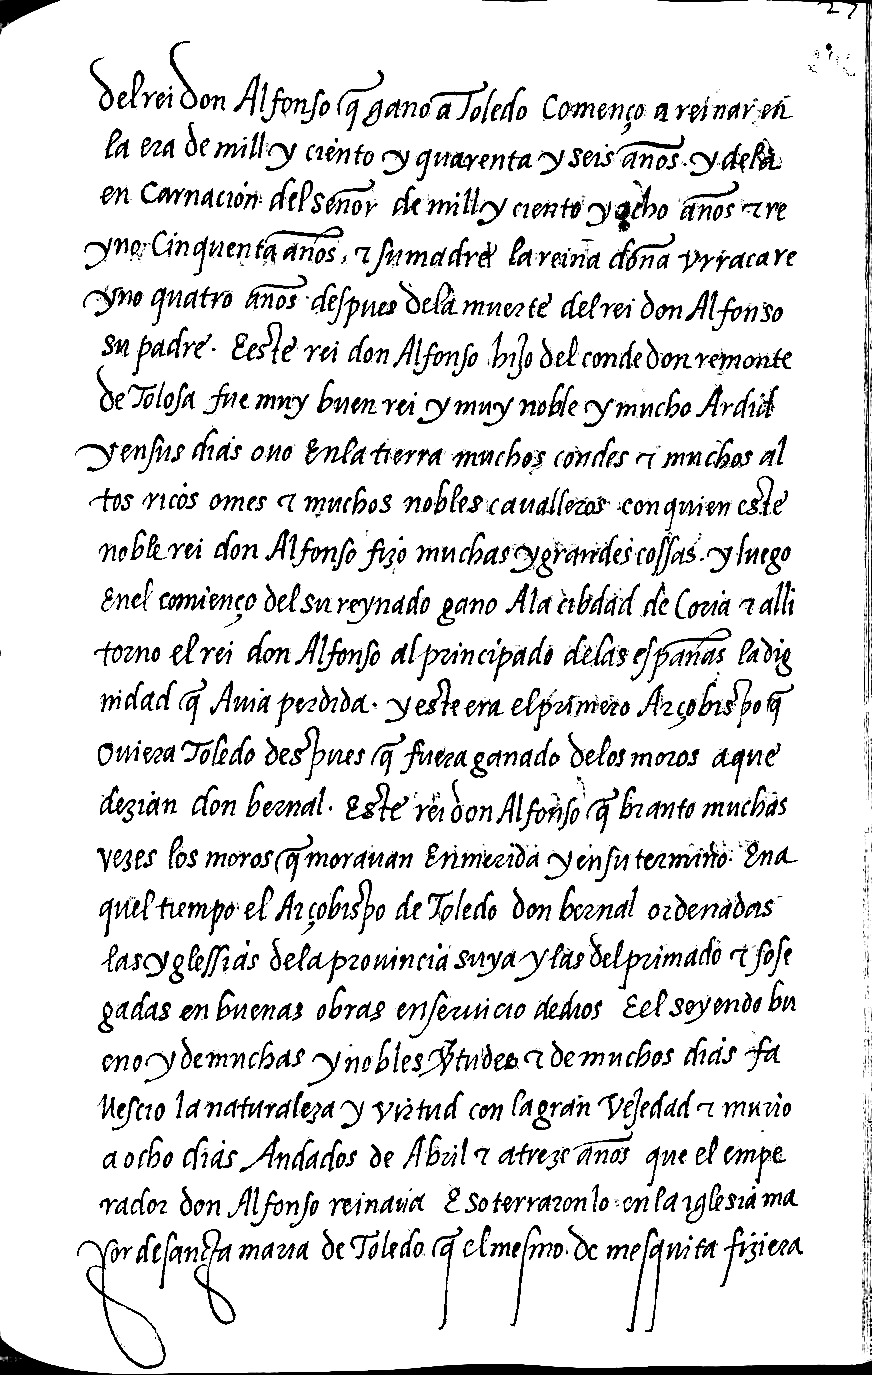 27
del rei don Alfonso q̃ gano a Toledo Començo a reinar en
la era de mill y ciento y quarenta y seis años. y dela
en Carnación del señor de mill y ciento y ocho años ⁊ re
yno Cinquenta años, ⁊ su madre la reina doña Vrraca re
yno quatro años despues dela muerte del rei don Alfonso
su padre. Eeste rei don Alfonso hijo del conde don remonte
de Tolosa fue muy buen rei y muy noble y mucho Ardid
y en sus dias ouo Enla tierra muchos condes ⁊ muchos al
tos ricos omes ⁊ muchos nobles caualleros con quien este
noble rei don Alfonso fizo muchas y grandes cossas. y luego
Enel comienço del su reynado gano Ala cibdad de Coria ⁊ alli
torno el rei don Alfonso al principado delas españas la dig
nidad q̃ Auia perdida. y este era el primero Arçobispo q̃
Ouiera Toledo despues q̃ fuera ganado delos moros aque
dezian don bernal. Este rei don Alfonso q̃ branto muchas
vezes los moros q̃ morauan En merida y en su termino. En a
quel tiempo el Arçobispo de Toledo don bernal ordenadas
las yglessias dela prouincia suya y las del primado ⁊ sose
gadas en buenas obras en seruicio de dios E el seyendo bu
eno y de muchas y nobles ṽtudes ⁊ de muchos dias fa
llescio la naturaleza y virtud con la gran Vejedad ⁊ murio
a ocho dias Andados de Abril ⁊ a treze años que el empe
rador don Alfonso reinaua E soterraron lo en la iglesia ma
yor de sancta maria de Toledo q̃ el mesmo de mesquita fiziera